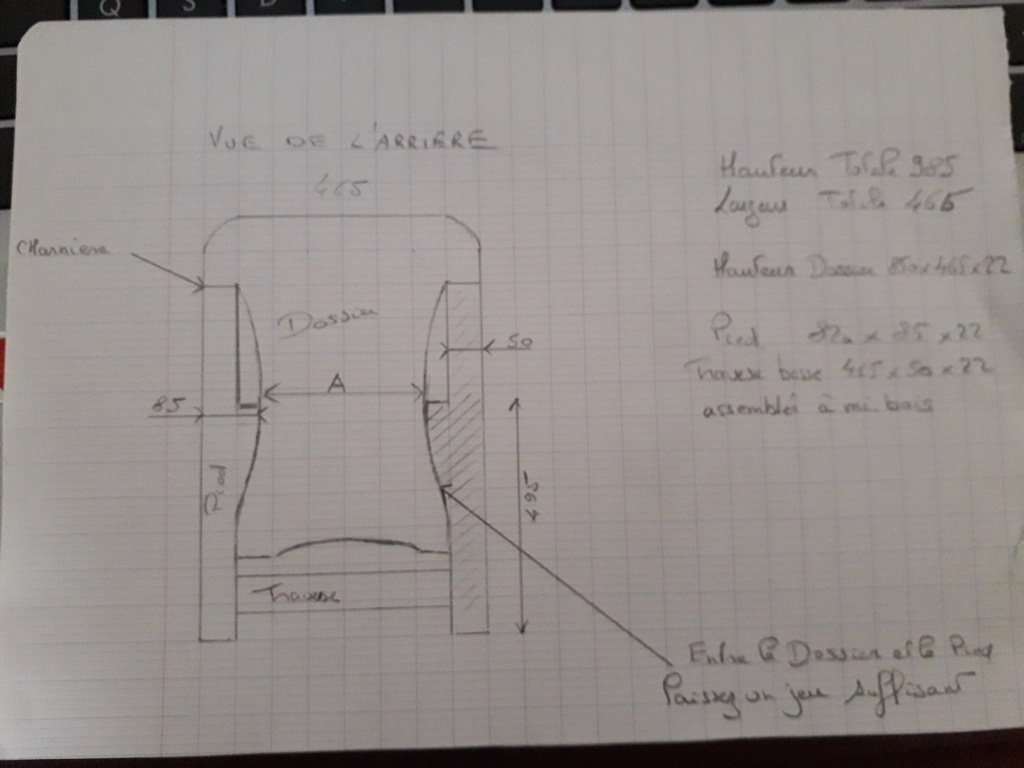 Q S D
VUE DE L'ARRIERE
465
Hauteur Totale 985
Largeur Totale 465
Charniere
Hauteur Dossier 850x465x22
Dossier
50
Pied 820 x 85 x 22
Traverse basse 465 x 50 x 22
A
85
assemblés à mi-bois
Pied
495
Traverse
Entre le Dossier et le Pied
Laissez un jeu suffisant